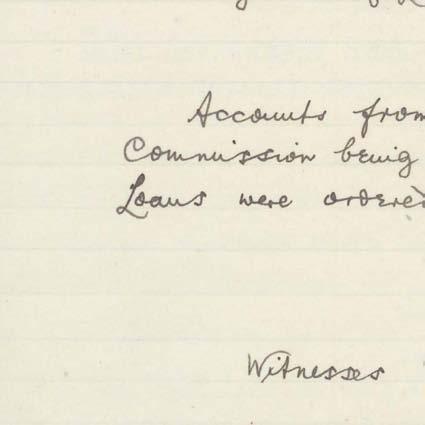 Accounts from
Commission being
Loans were ordered
Witnesses